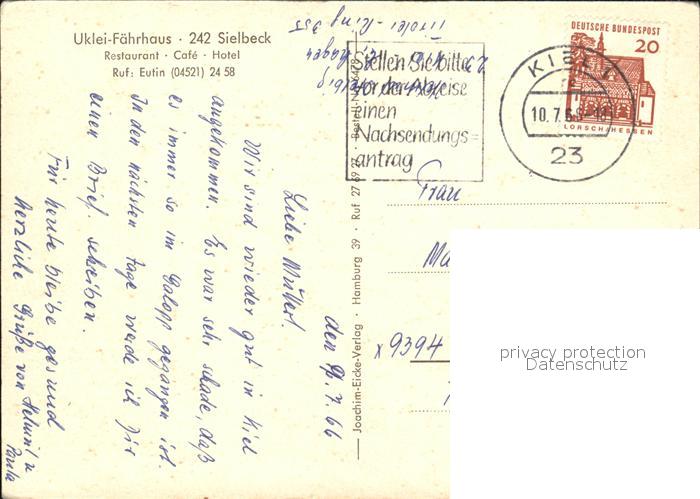 Uklei-Fährhaus · 242 Sielbeck
Restaurant · Café · Hotel
Ruf: Eutin (04521) 24 58
den 9. 7. 66
Liebe Mutter!
Wir sind wieder gut in Kiel
angekommen. Es war sehr schade, daß
es immer so im Galopp gegangen ist.
In den nächsten Tage werde ich Dir
einen Brief schreiben.
Für heute bleibe gesund
herzliche Grüße von Helmut u
Paula
Joachim-Eicke-Verlag · Hamburg 39 · Ruf 27 69 27 · Bestell-Nr.
Tiroler-Ring 355
Stellen Sie bitte
vor der Abreise
einen
Nachsendungs=
antrag
KIEL 1
10.7.6
23
DEUTSCHE BUNDESPOST
20
LORSCH/HESSEN
Frau
Ma
x 9394
privacy protection
Datenschutz